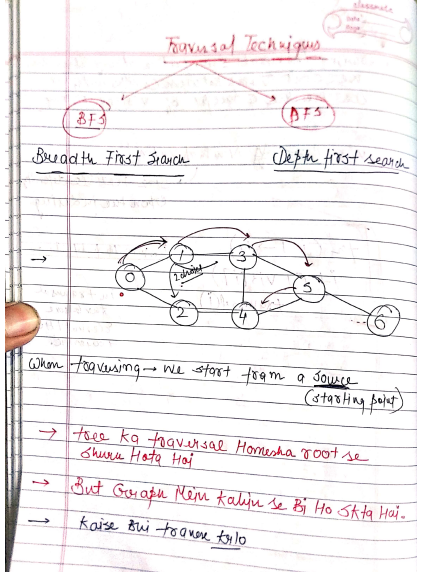 classmate
Date
Page
Traversal Techniques
BFS
DFS
Breadth First Search
Depth first search
→
1
3
0
2 choices
5
2
4
6
When traversing → we start from a source
(starting point)
→ tree ka traversal Hamesha root se
Shuru Hota Hai
→ But Graph Mein Kahin se Bi Ho Skta Hai.
→ Kaise Bhi traverse krlo